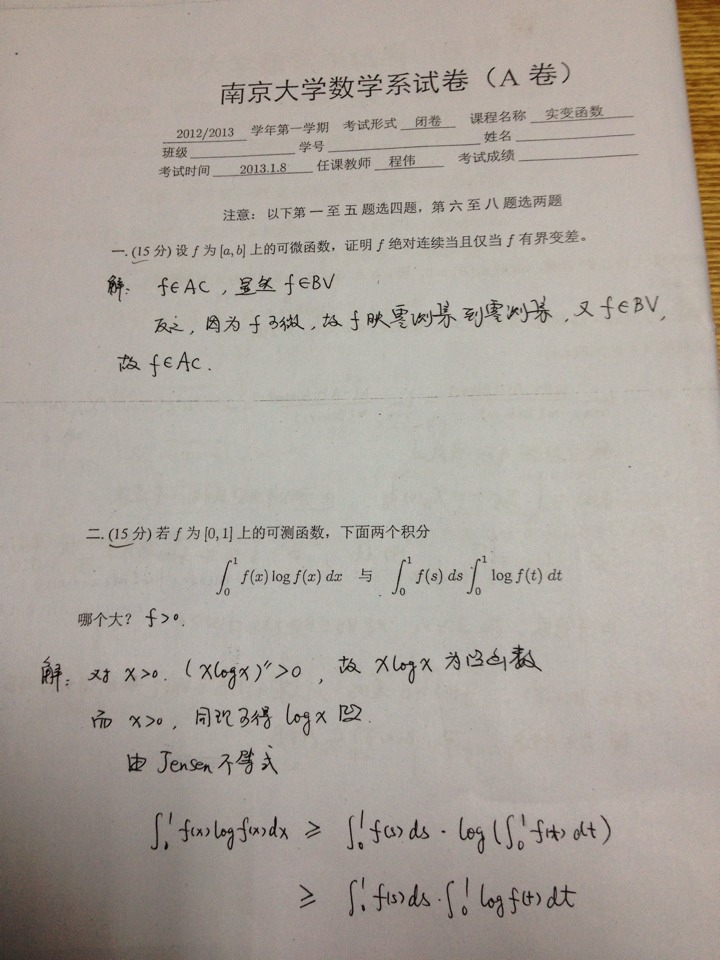 南京大学数学系试卷（A 卷）
2012/2013 学年第一学期 考试形式 闭卷 课程名称 实变函数
班级 学号 姓名
考试时间 2013.1.8 任课教师 程伟 考试成绩
注意： 以下第 一 至 五 题选四题，第 六 至 八 题选两题
一. (15 分) 设 f 为 [a, b] 上的可微函数，证明 f 绝对连续当且仅当 f 有界变差。
解： f∈AC，显然 f∈BV
反之，因为 f 可微，故 f 映零测集到零测集，又 f∈BV，
故 f∈AC.
二. (15 分) 若 f 为 [0, 1] 上的可测函数，下面两个积分
∫₀¹ f(x) log f(x) dx 与 ∫₀¹ f(s) ds ∫₀¹ log f(t) dt
哪个大？ f>0.
解：对 x>0. (xlogx)″>0，故 xlogx 为凸函数
而 x>0，同理可得 logx 凹.
由 Jensen 不等式
∫₀¹ f(x)logf(x)dx ≥ ∫₀¹ f(s)ds · log(∫₀¹ f(t) dt)
≥ ∫₀¹ f(s)ds · ∫₀¹ logf(t)dt